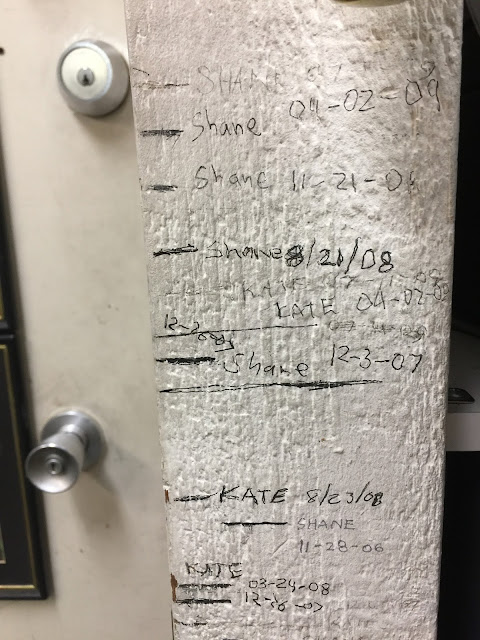 SHANE
04-02-09
Shane
Shane 11-21-08
Shane 8/21/08
KATE
KATE 04-02-09
12-3
Shane 12-3-07
KATE 8/23/08
SHANE
11-28-06
KATE
03-24-08
12-16-07